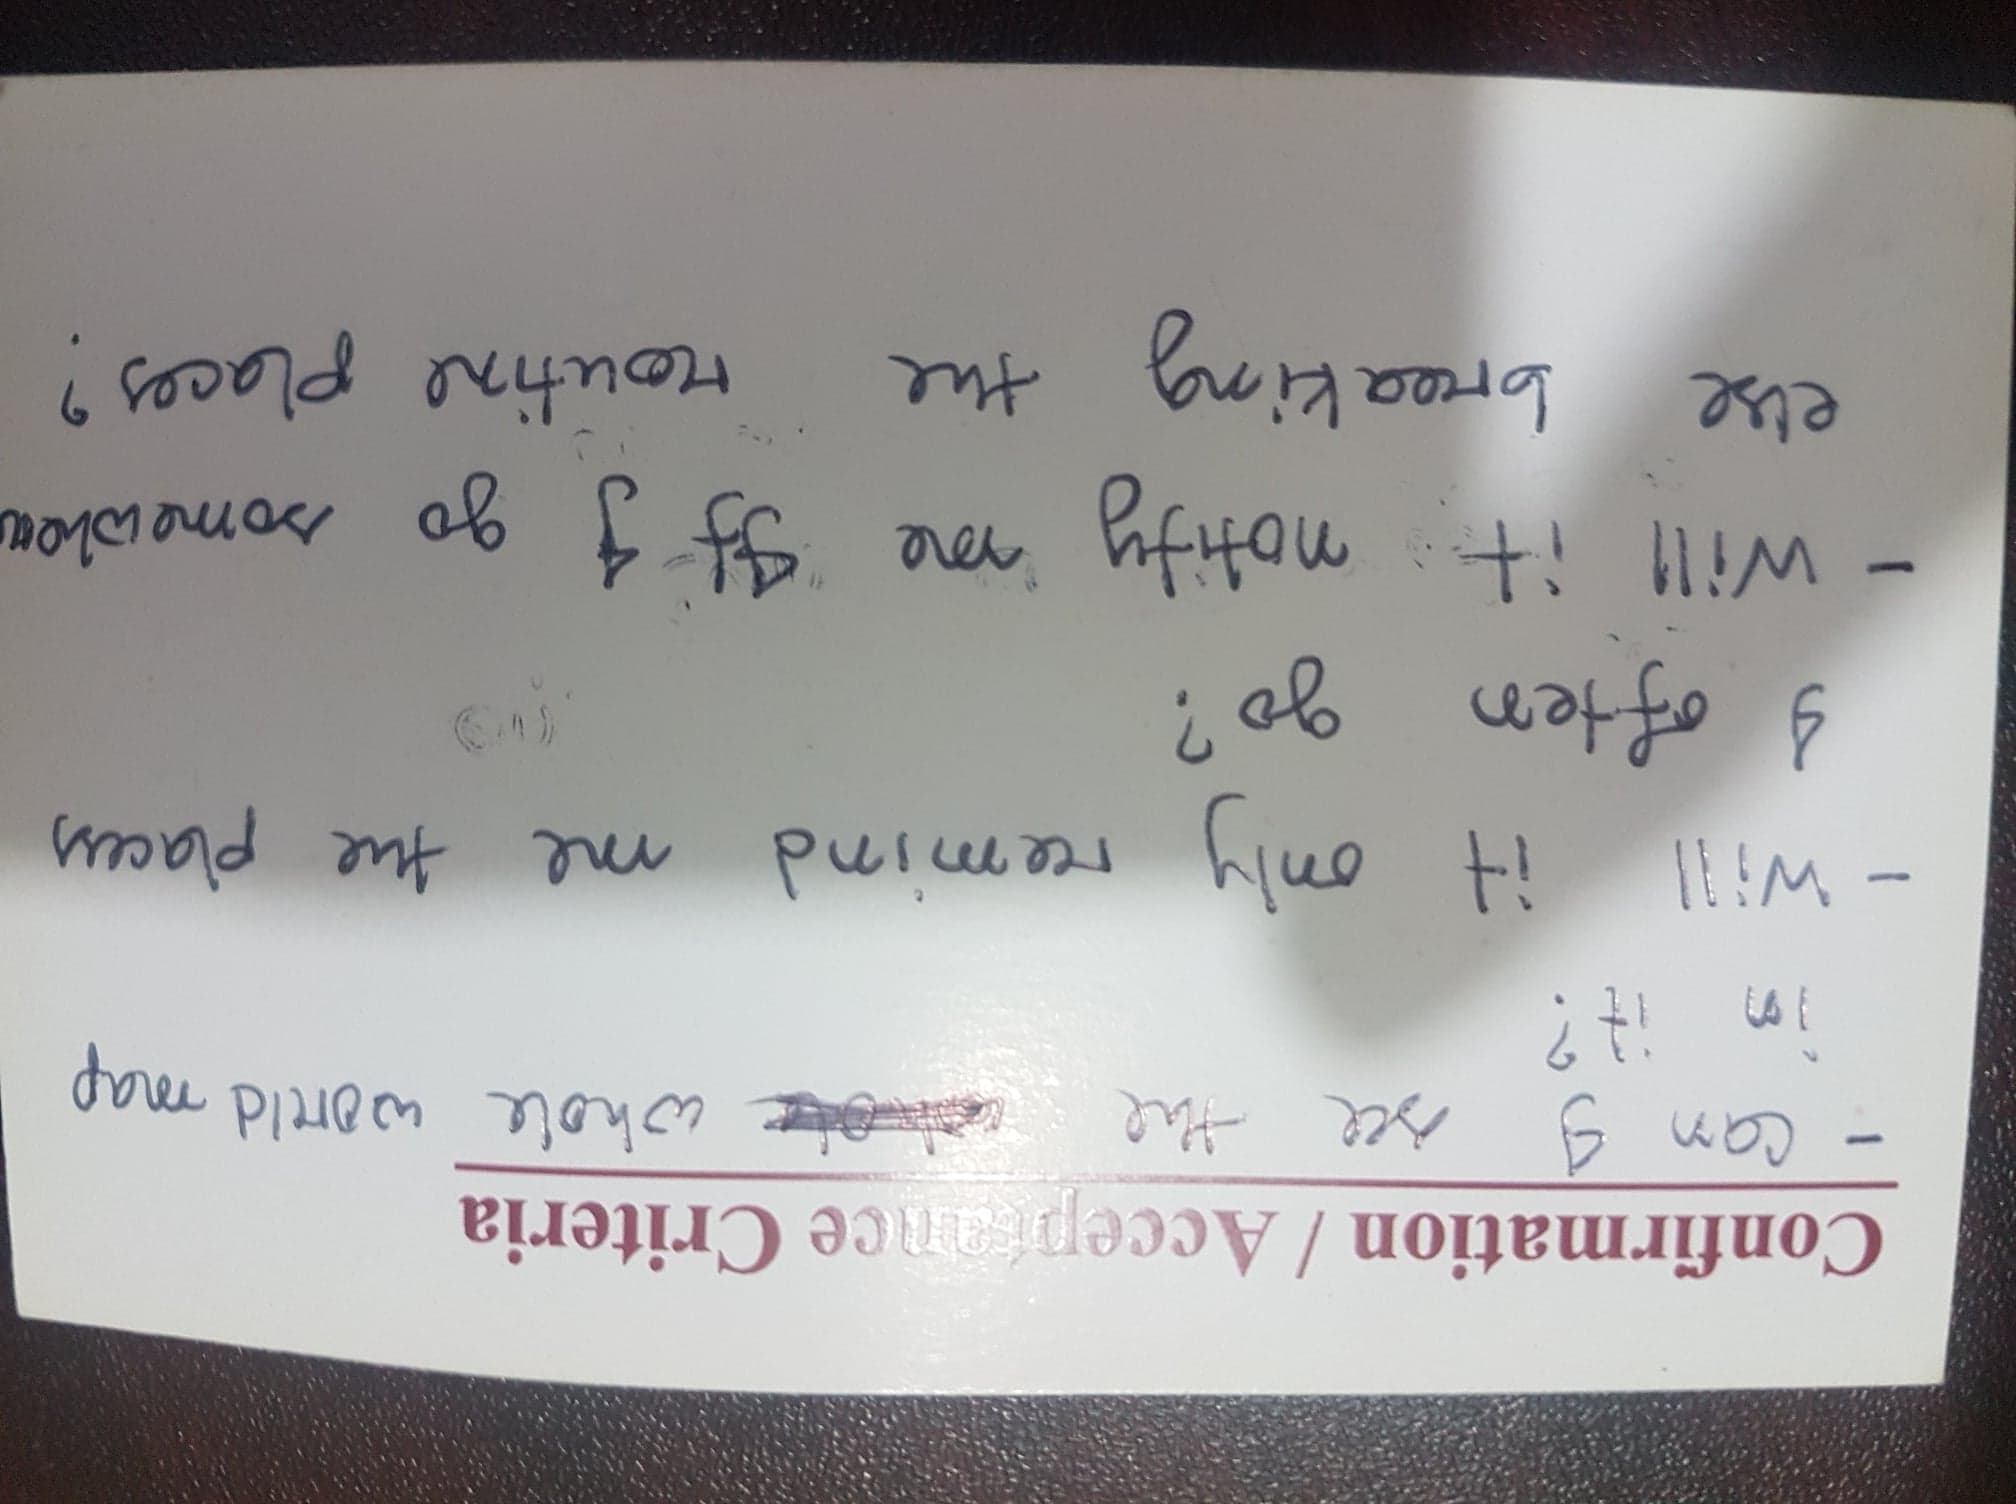 Confirmation / Acceptance Criteria
- Can I see the whole world map
in it?
- Will it only remind me the places
I often go?
- Will it notify me If I go somewhere
else breaking the routine places?